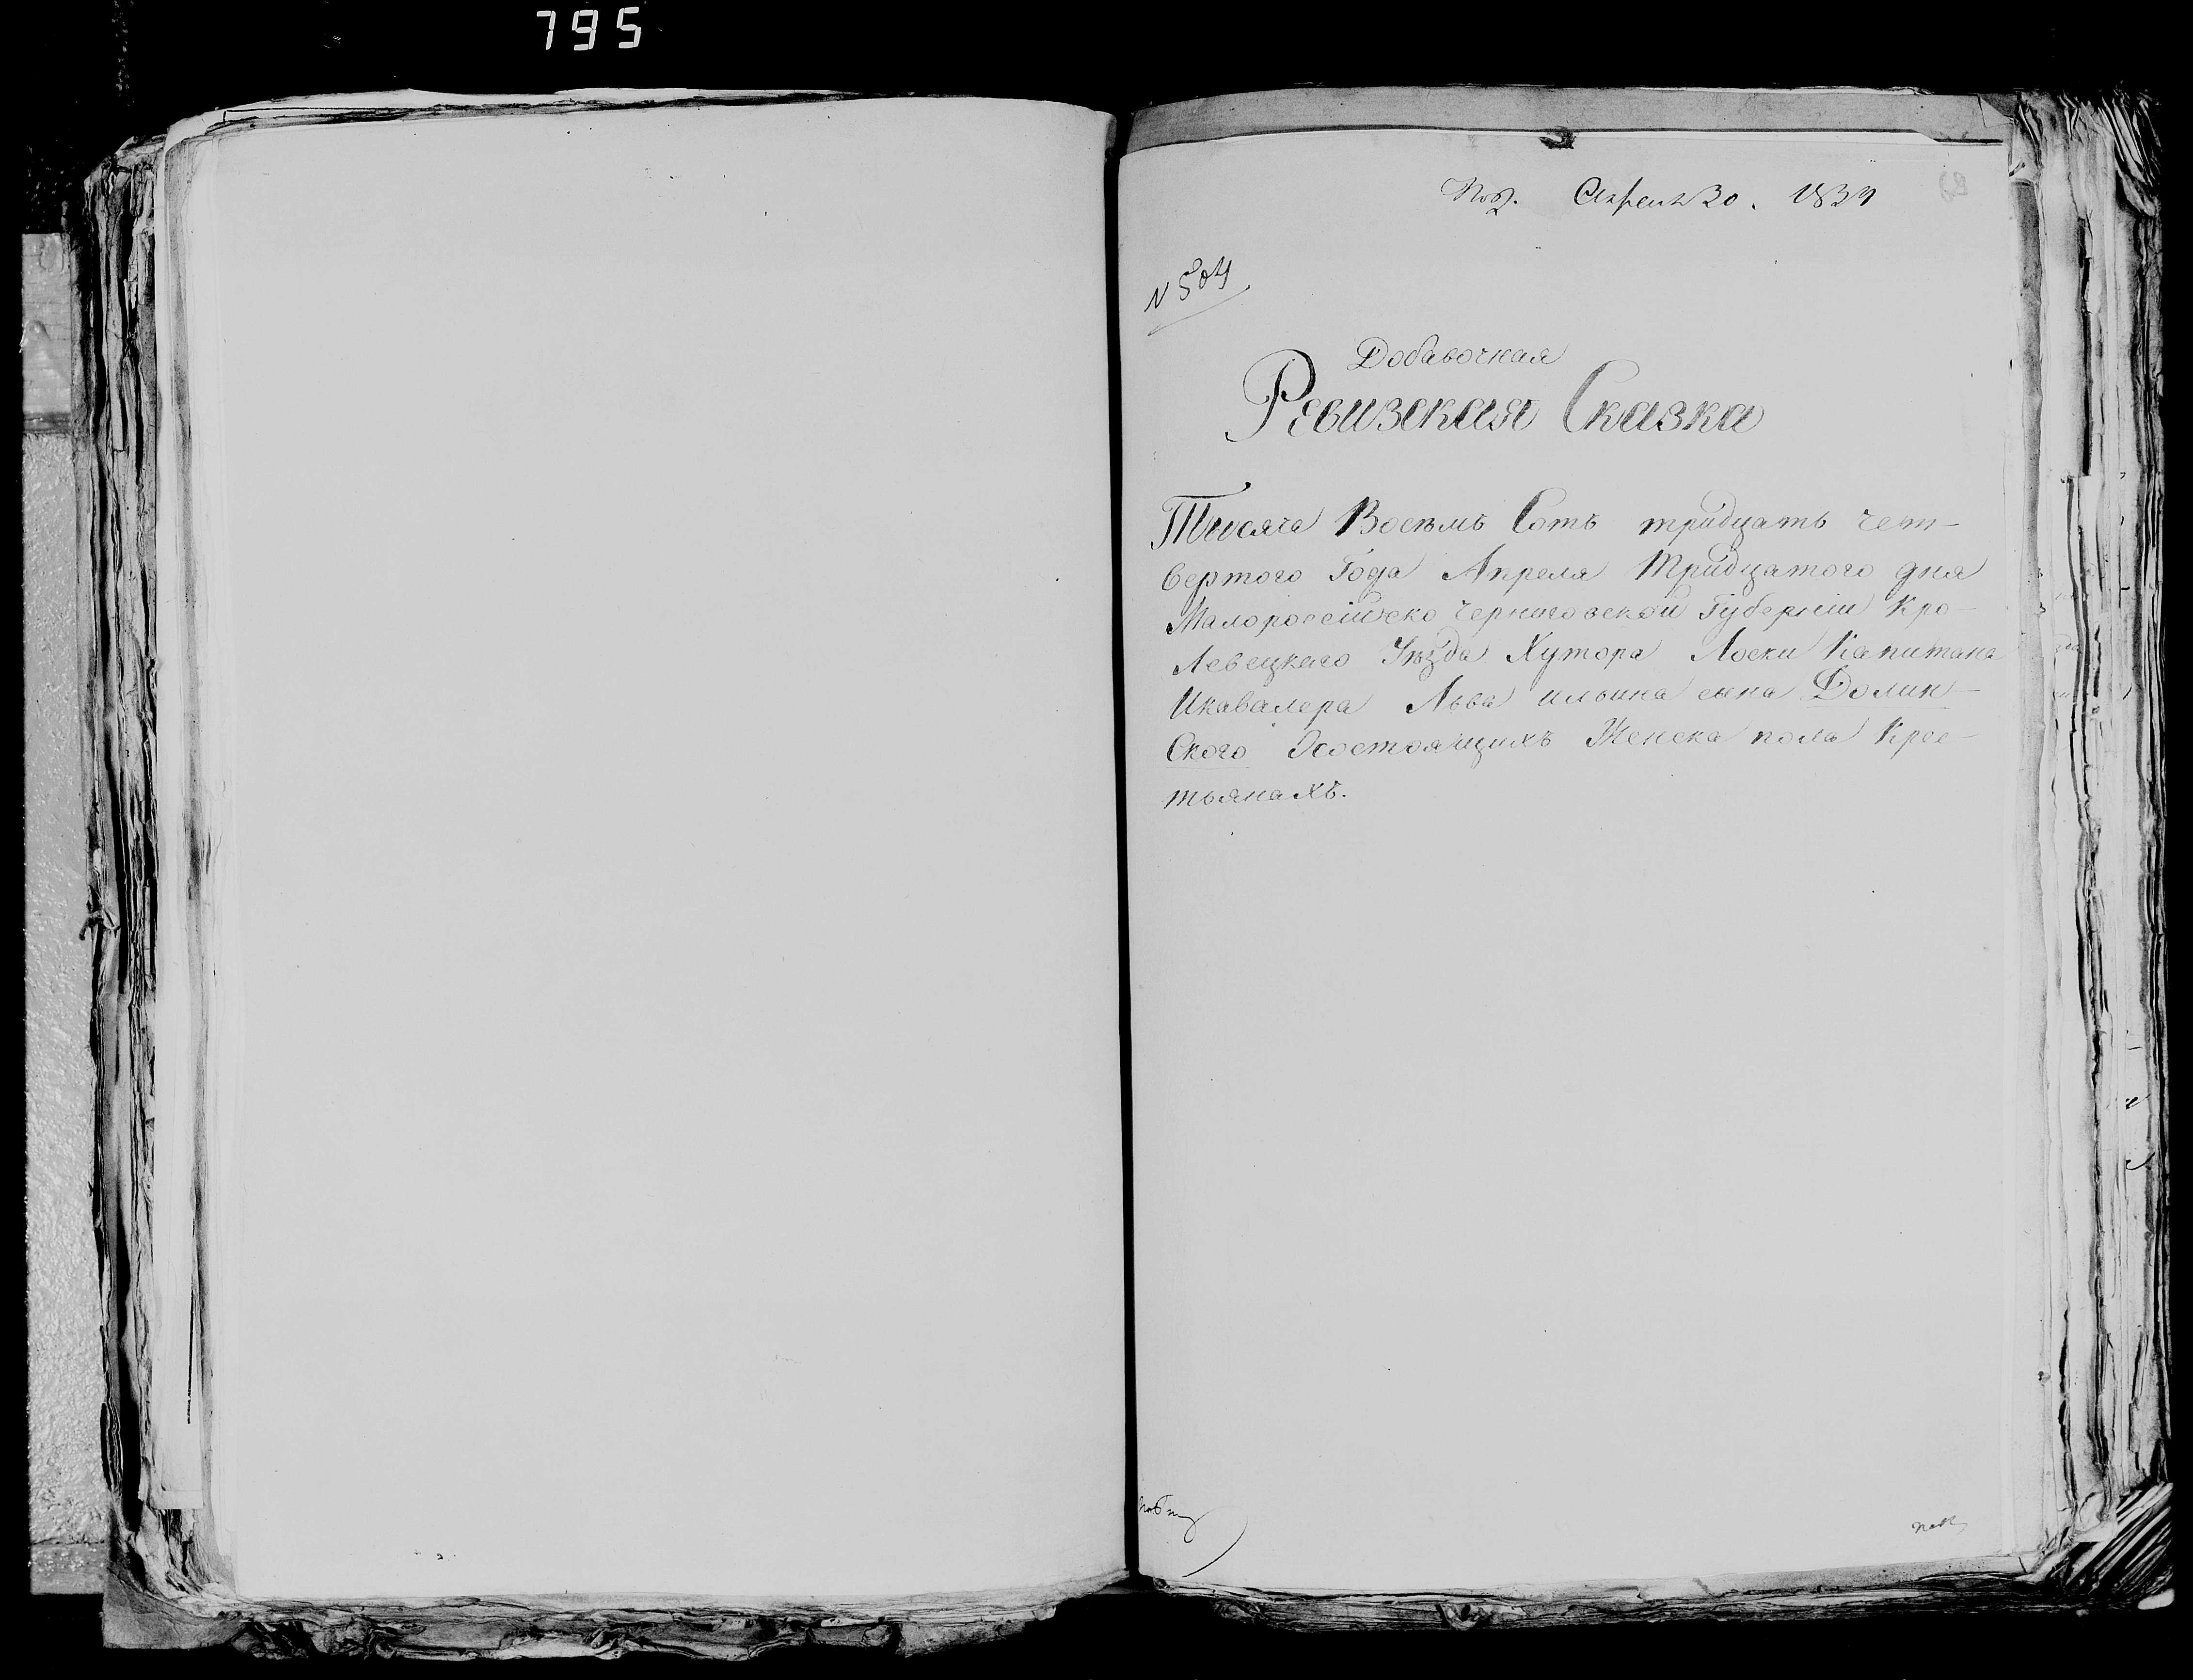 795
Апреля 30. 1834
N 504
Добавочная
Ревизская Сказка
Тысяча Восемь Сотъ тридцать чет-
вертого Года Апреля Тридцатого дня
Малороссійско Черниговской Губерніи Кро-
левецкаго Уѣзда Хутора Лоски Капитана
Икавалера Льва ильина сына Долин-
ского Осостоящихъ Женска пола Крес-
тьянахъ.